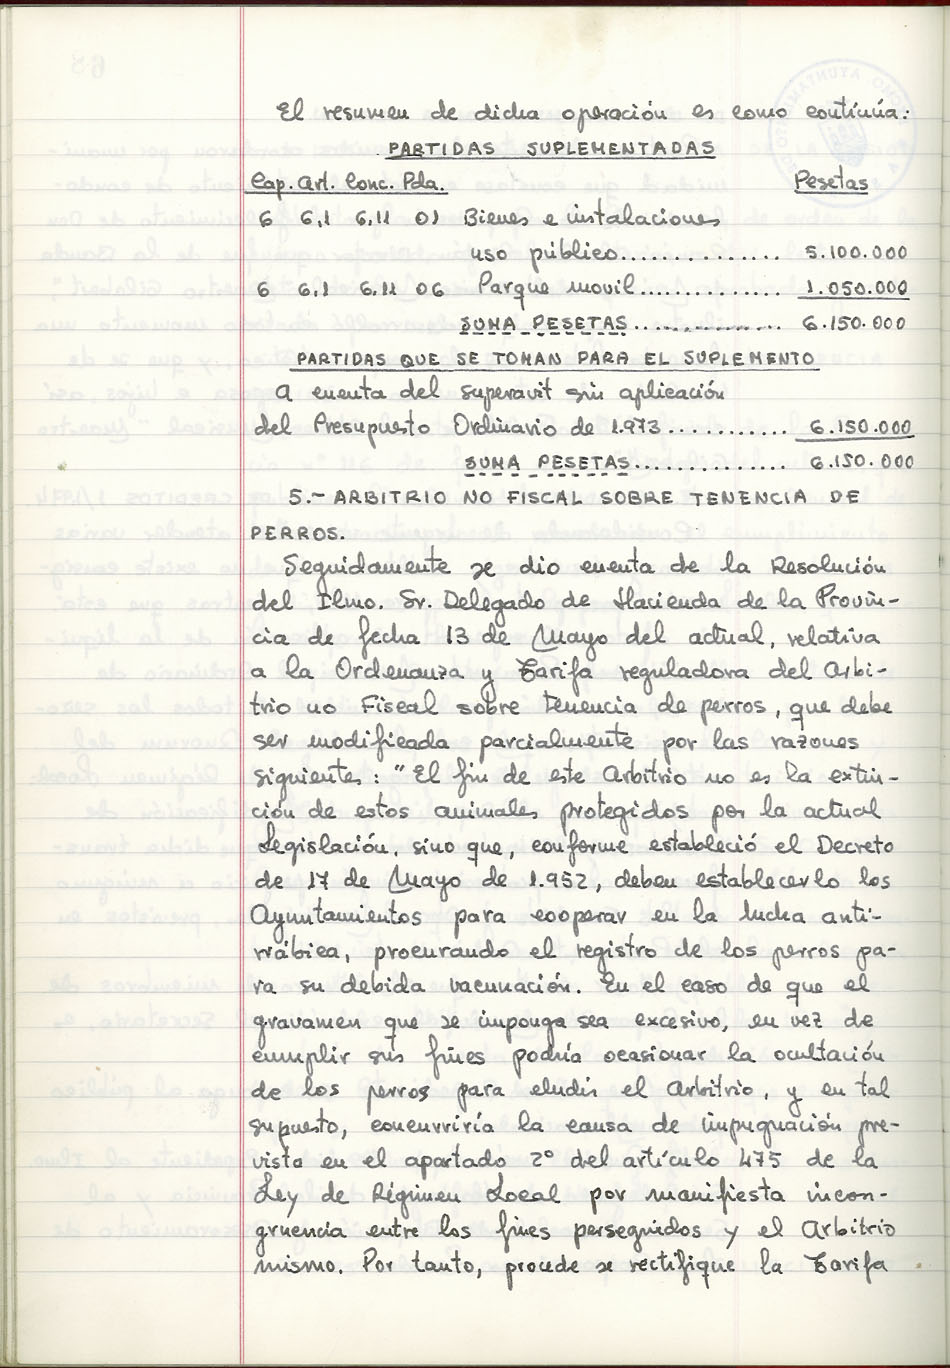 El resumen de dicha operación es como continúa:
PARTIDAS SUPLEMENTADAS
Cap. Art. Conc. Pda. Pesetas
6 6,1 6,11 01 Bienes e instalaciones
uso público............... 5.100.000
6 6,1 6,11 06 Parque movil............. 1.050.000
SUMA PESETAS............. 6.150.000
PARTIDAS QUE SE TOMAN PARA EL SUPLEMENTO
A cuenta del superavit sin aplicación
del Presupuesto Ordinario de 1.973........... 6.150.000
SUMA PESETAS.............. 6.150.000
5.- ARBITRIO NO FISCAL SOBRE TENENCIA DE
PERROS.
Seguidamente se dio cuenta de la Resolución
del Ilmo. Sr. Delegado de Hacienda de la Provin-
cia de fecha 13 de Mayo del actual, relativa
a la Ordenanza y Tarifa reguladora del Arbi-
trio no Fiscal sobre Tenencia de perros, que debe
ser modificada parcialmente por las razones
siguientes: "El fin de este Arbitrio no es la extin-
ción de estos animales protegidos por la actual
Legislación, sino que, conforme estableció el Decreto
de 17 de Mayo de 1.952, deben establecerlo los
Ayuntamientos para cooperar en la lucha anti-
rrábica, procurando el registro de los perros pa-
ra su debida vacunación. En el caso de que el
gravamen que se imponga sea excesivo, en vez de
cumplir sus fines podría ocasionar la ocultación
de los perros para eludir el Arbitrio, y en tal
supuesto, concurriría la causa de impugnación pre-
vista en el apartado 2º del artículo 475 de la
Ley de Régimen Local por manifiesta incon-
gruencia entre los fines perseguidos y el Arbitrio
mismo. Por tanto, procede se rectifique la Tarifa